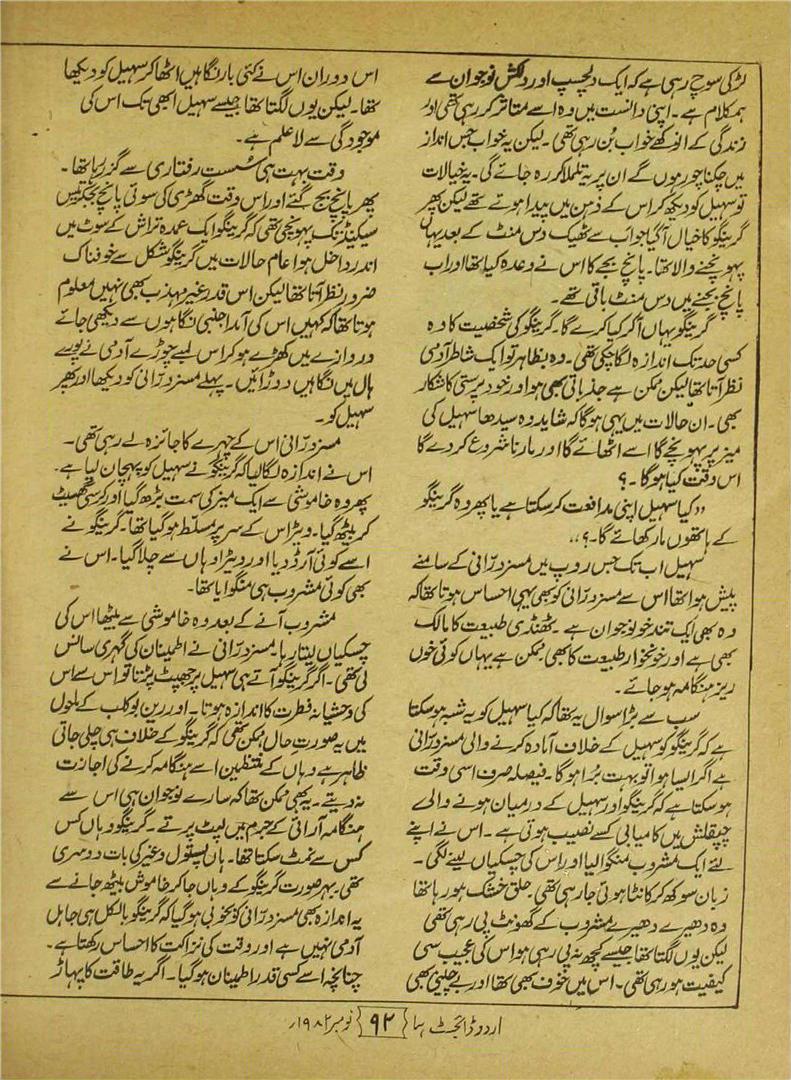 لڑکی سوچ رہی ہے کہ ایک دلچسپ اور دلکش نوجوان سے
ہمکلام ہے۔ اپنی دانست میں وہ اسے متاثر کر رہی تھی اور
زندگی کے انوکھے خواب بُن رہی تھی۔ لیکن یہ خواب جس انداز
میں چکنا چور ہوں گے ان پر یہ تلملا کر رہ جائے گی۔ یہ خیالات
تو سہیل کو دیکھ کر اس کے ذہن میں پیدا ہوتے تھے لیکن پھر
گرینگو کا خیال آگیا جو اب سے ٹھیک دس منٹ کے بعد یہاں
پہونچنے والا تھا۔ پانچ بجے کا اس نے وعدہ کیا تھا اور اب
پانچ بجنے میں دس منٹ باقی تھے۔
گرینگو یہاں آکر کیا کرے گا۔ گرینگو کی شخصیت کا وہ
کسی حد تک اندازہ لگا چکی تھی۔ وہ بظاہر تو ایک شاطر آدمی
نظر آتا تھا لیکن ممکن ہے جذباتی بھی ہو اور خود پرستی کا شکار
بھی۔ ان حالات میں یہی ہوگا کہ شاید وہ سیدھا سہیل کی
میز پر پہونچے گا اسے اٹھائے گا اور مارنا شروع کر دے گا
اس وقت کیا ہوگا۔؟
“کیا سہیل اپنی مدافعت کر سکتا ہے یا پھر وہ گرینگو
کے ہاتھوں مار کھائے گا۔؟”
سہیل اب تک جس روپ میں مسز درّانی کے سامنے
پیش ہوا تھا اس سے مسز درّانی کو بھی یہی احساس ہوتا تھا کہ
وہ بھی ایک تندخو نوجوان ہے۔ ٹھنڈی طبیعت کا مالک
بھی ہے اور خونخوار طبیعت کا بھی ممکن ہے یہاں کوئی خوں
ریز ہنگامہ ہو جائے۔
سب سے بڑا سوال یہ تھا کہ کیا سہیل کو یہ شبہ ہو سکتا
ہے کہ گرینگو کو سہیل کے خلاف آمادہ کرنے والی مسز درّانی
ہے اگر ایسا ہوا تو بہت بُرا ہوگا۔ فیصلہ صرف اسی وقت
ہو سکتا ہے کہ گرینگو اور سہیل کے درمیان ہونے والے
چپقلش میں کامیابی کسے نصیب ہوتی ہے۔ اس نے اپنے
لئے ایک مشروب منگوا لیا اور اس کی چسکیاں لینے لگی۔
زبان سوکھ کر کانٹا ہوتی جا رہی تھی۔ حلق خشک ہو رہا تھا
وہ دھیرے دھیرے مشروب کے گھونٹ پی رہی تھی
لیکن یوں لگتا تھا جیسے کچھ نہ پی رہی ہو اس کی عجیب سی
کیفیت ہو رہی تھی۔ اس میں خوف بھی تھا اور بے چینی بھی
اس دوران اس نے کئی بار نگاہیں اٹھا کر سہیل کو دیکھا
تھا۔ لیکن یوں لگتا تھا جیسے سہیل ابھی تک اس کی
موجودگی سے لاعلم ہے۔
وقت بہت ہی سُست رفتاری سے گزر رہا تھا۔
پھر پانچ بج گئے اور اس وقت گھڑی کی سوئی پانچ بجکر تیس
سیکنڈ تک پہونچی تھی کہ گرینگو ایک عمدہ تراش کے سوٹ میں
اندر داخل ہوا عام حالات میں گرینگو شکل سے خوفناک
ضرور نظر آتا تھا لیکن اس قدر غیر مہذب بھی نہیں معلوم
ہوتا تھا کہ کہیں اس کی آمد اجنبی نگاہوں سے دیکھی جائے
دروازے میں کھڑے ہو کر اس لمبے چوڑے آدمی نے پورے
ہال میں نگاہیں دوڑائیں۔ پہلے مسز درّانی کو دیکھا اور پھر
سہیل کو۔
مسز درّانی اس کے چہرے کا جائزہ لے رہی تھی۔
اس نے اندازہ لگا لیا کہ گرینگو نے سہیل کو پہچان لیا ہے۔
پھر وہ خاموشی سے ایک میز کی سمت بڑھ گیا اور کرسی گھسیٹ
کر بیٹھ گیا۔ ویٹر اس کے سر پر مسلط ہو گیا تھا۔ گرینگو نے
اسے کوئی آرڈر دیا اور ویٹر وہاں سے چلا گیا۔ اس نے
بھی کوئی مشروب ہی منگوایا تھا۔
مشروب آنے کے بعد وہ خاموشی سے بیٹھا اس کی
چسکیاں لیتا رہا۔ مسز درّانی نے اطمینان کی گہری سانس
لی تھی۔ اگر گرینگو آتے ہی سہیل پر جھپٹ پڑتا تو اس سے اس
کی وحشیانہ فطرت کا اندازہ ہوتا۔ اور رین بو کلب کے ماحول
میں یہ صورتِ حال ممکن تھی کہ گرینگو کے خلاف ہی چلی جاتی
ظاہر ہے وہاں کے منتظمین اسے ہنگامہ کرنے کی اجازت
نہ دیتے۔ یہ بھی ممکن تھا کہ سارے نوجوان ہی اس سے
ہنگامہ آرائی کے جرم میں لپٹ پڑتے۔ گرینگو وہاں کس
کس سے نمٹ سکتا تھا۔ ہاں پستول وغیرہ کی بات دوسری
تھی۔ بہرصورت گرینگو کے وہاں جا کر خاموش بیٹھ جانے سے
یہ اندازہ بھی مسز درّانی کو بخوبی ہو گیا کہ گرینگو بالکل ہی جاہل
آدمی نہیں ہے اور وقت کی نزاکت کا احساس رکھتا ہے۔
چنانچہ اسے کسی قدر اطمینان ہو گیا۔ اگر یہ طاقت کا پہاڑ
اردو ڈائجسٹ ہما {۹۲} نومبر ۱۹۸۲ء